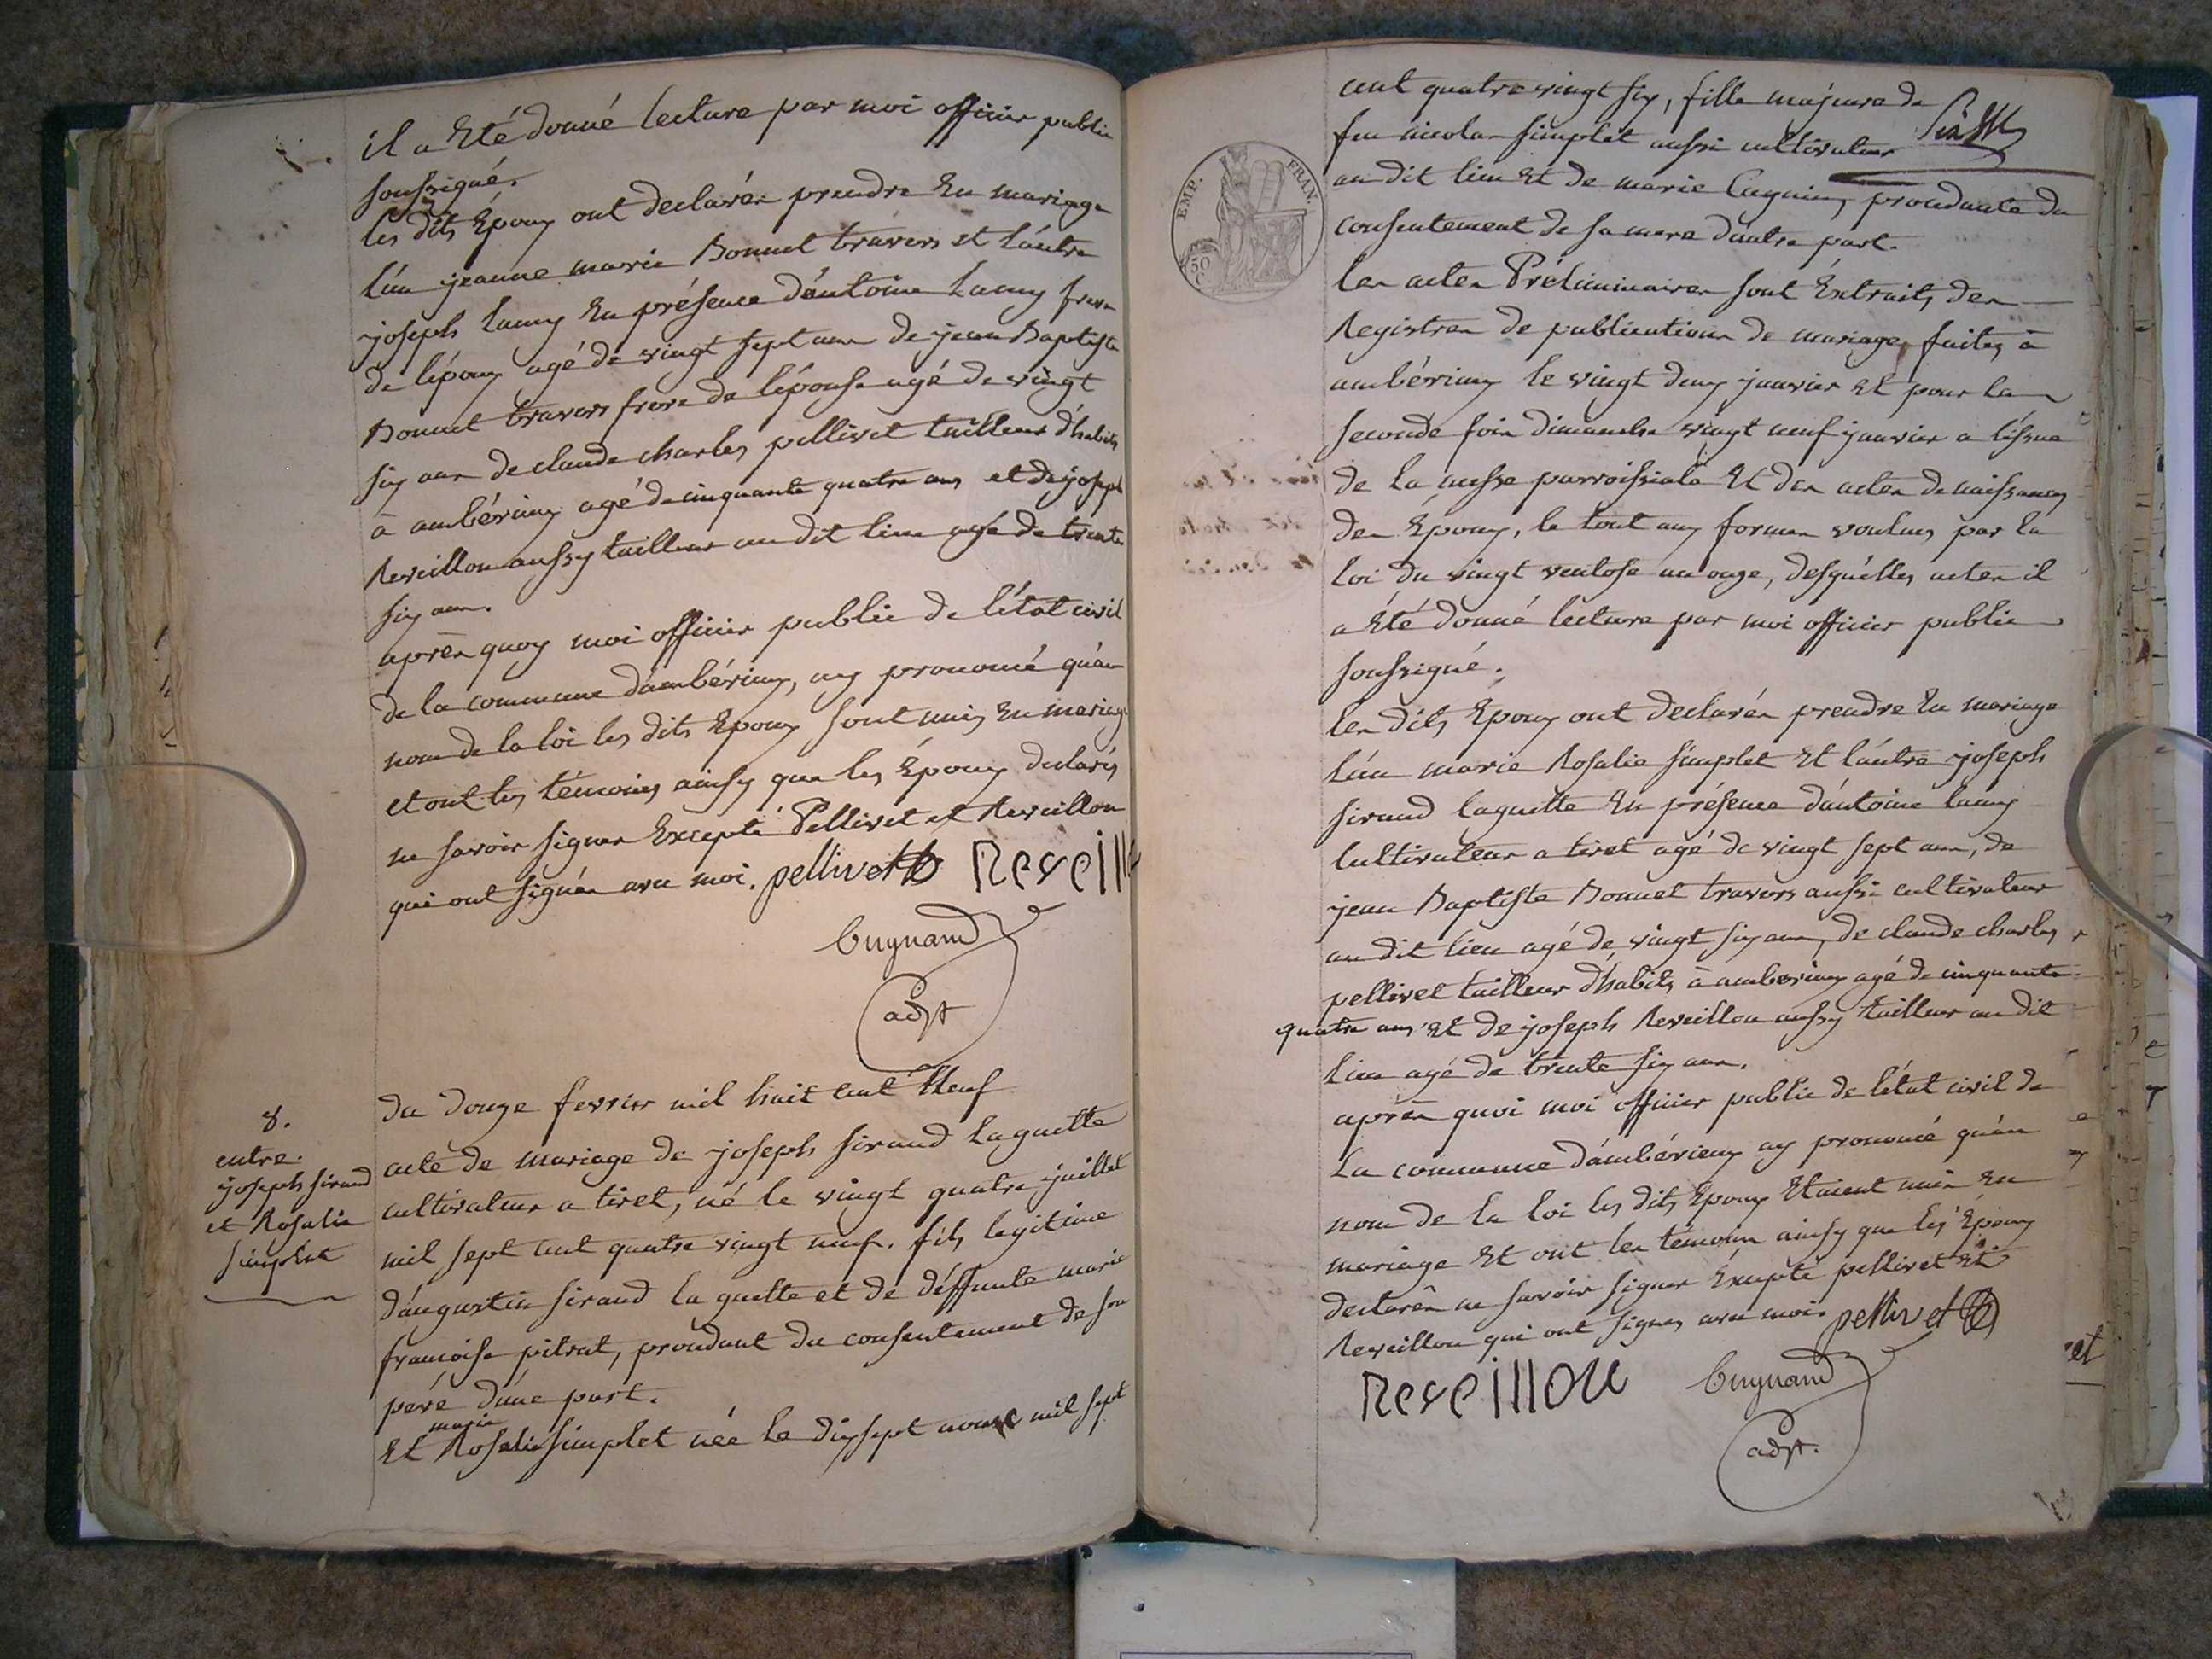 il a Eté donné lecture par moi officier public
soussigné.
les dits Epoux ont declarés prendre En mariage
l'un jeanne marie Bonnet travers et l'autre
joseph Lamy En présence d'antoine Lamy frere
de l'époux agé de vingt sept ans de jean Baptiste
Bonnet travers frere de l'épouse agé de vingt
six ans de claude charles pellivet tailleur d'habits
à ambérieux agé de cinquante quatre ans et de joseph
Reveillon aussy tailleur au dit lieu agé de trente
six ans.
après quoy moi officier public de l'état civil
de la commune d'ambérieux, ay prononcé qu'au
nom de la loi les dits Epoux sont unis En mariage
et ont les témoins ainsy que les Époux declarés
ne savoir signer Excepté Pellivet et Reveillon
qui ont signés avec moi. pellivet Reveill
Cugnand
adjt
8.
entre.
joseph sirand
et Rosalie
simplet
du douze fevrier mil huit cent Neuf
acte de mariage de joseph sirand Laguette
cultivateur a tiret, né le vingt quatre juillet
mil sept cent quatre vingt neuf. fils legitime
d'augustin sirand la guette et de deffunte marie
francoise pitrat, procedant du consentement de son
pere d'une part.
marie
Et Rosalie simplet née le dixsept mil sept
cent quatre vingt six, fille majeure de
feu nicolas simplet aussi cultivateur
au dit lieu Et de marie procedante du
consentement de sa mere d'autre part.
EMP. FRAN.
50
C
les actes Préliminaires sont Extraits des
Registres de publications de mariage faites à
ambérieux le vingt deux janvier Et pour la
seconde fois dimanche vingt neuf janvier a l'issue
de la messe parroissiale Et des actes de naissances
des Époux, le tout aux formes voulues par la
loi du vingt ventose an onze, desquelles actes il
a Eté donné lecture par moi officier public
soussigné.
les dits Epoux ont declarés prendre En mariage
l'un marie Rosalie simplet Et l'autre joseph
sirand laguette En présence d'antoine lamy
Cultivateur a tiret agé de vingt sept ans, de
jean Baptiste Bonnet travers aussi cultivateur
au dit lieu agé de vingt six ans, de claude charles
pellivet tailleur d'habits à amberieux agé de cinquante
quatre ans Et de joseph Reveillon aussy tailleur au dit
lieu agé de trente six ans.
après quoi moi officier public de l'état civil de
la commune d'ambérieux ay prononcé qu'au
nom de la loi les dits Epoux Etaient unis En
mariage Et ont les témoins ainsy que les Epoux
declarés ne savoir signer Excepté pellivet Et
Reveillon qui ont signés avec moi. pellivet
Reveillon Cugnand
adjt.
et